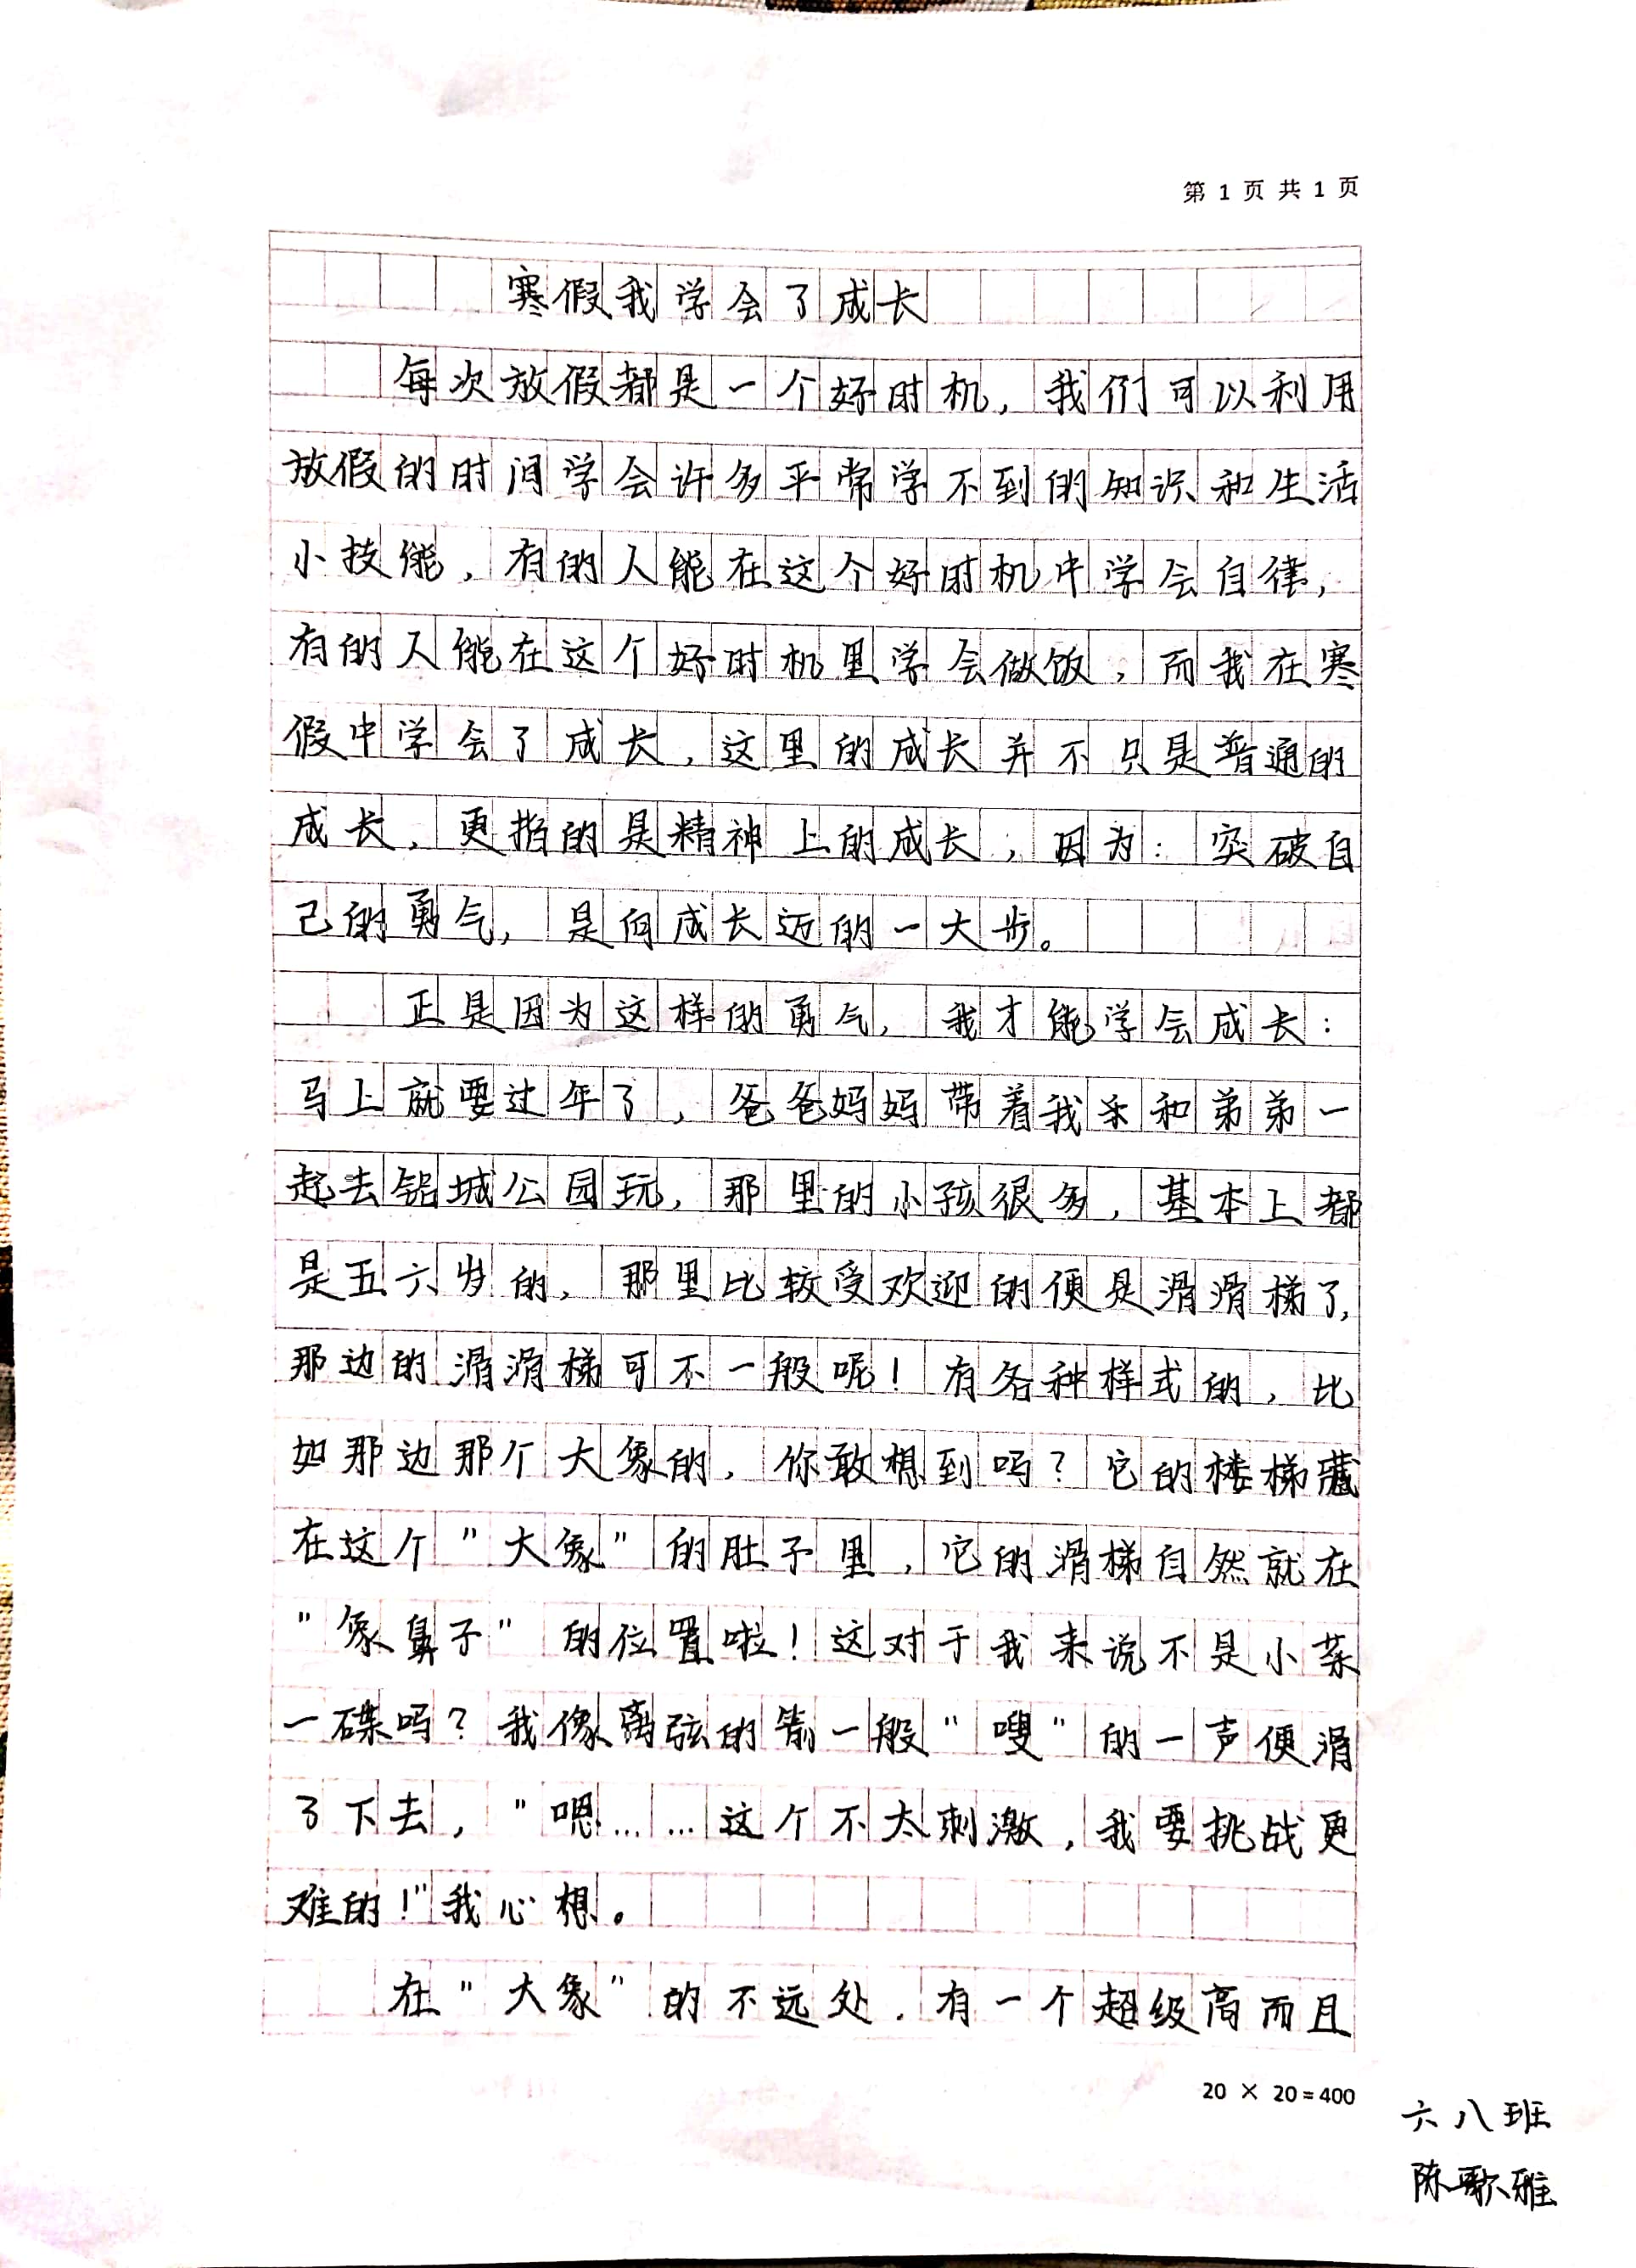 第 1 页 共 1 页
寒假我学会了成长
每次放假都是一个好时机，我们可以利用
放假的时间学会许多平常学不到的知识和生活
小技能，有的人能在这个好时机中学会自律，
有的人能在这个好时机里学会做饭，而我在寒
假中学会了成长，这里的成长并不只是普通的
成长，更指的是精神上的成长，因为：突破自
己的勇气，是向成长迈的一大步。
正是因为这样的勇气，我才能学会成长：
马上就要过年了，爸爸妈妈带着我和弟弟一
起去铝城公园玩，那里的小孩很多，基本上都
是五六岁的，那里比较受欢迎的便是滑滑梯了，
那边的滑滑梯可不一般呢！有各种样式的，比
如那边那个大象的，你敢想到吗？它的楼梯藏
在这个"大象"的肚子里，它的滑梯自然就在
"象鼻子"的位置啦！这对于我来说不是小菜
一碟吗？我像离弦的箭一般"嗖"的一声便滑
了下去，"嗯……这个不太刺激，我要挑战更
难的！"我心想。
在"大象"的不远处．有一个超级高而且
20 × 20=400
六八班
陈歌雅